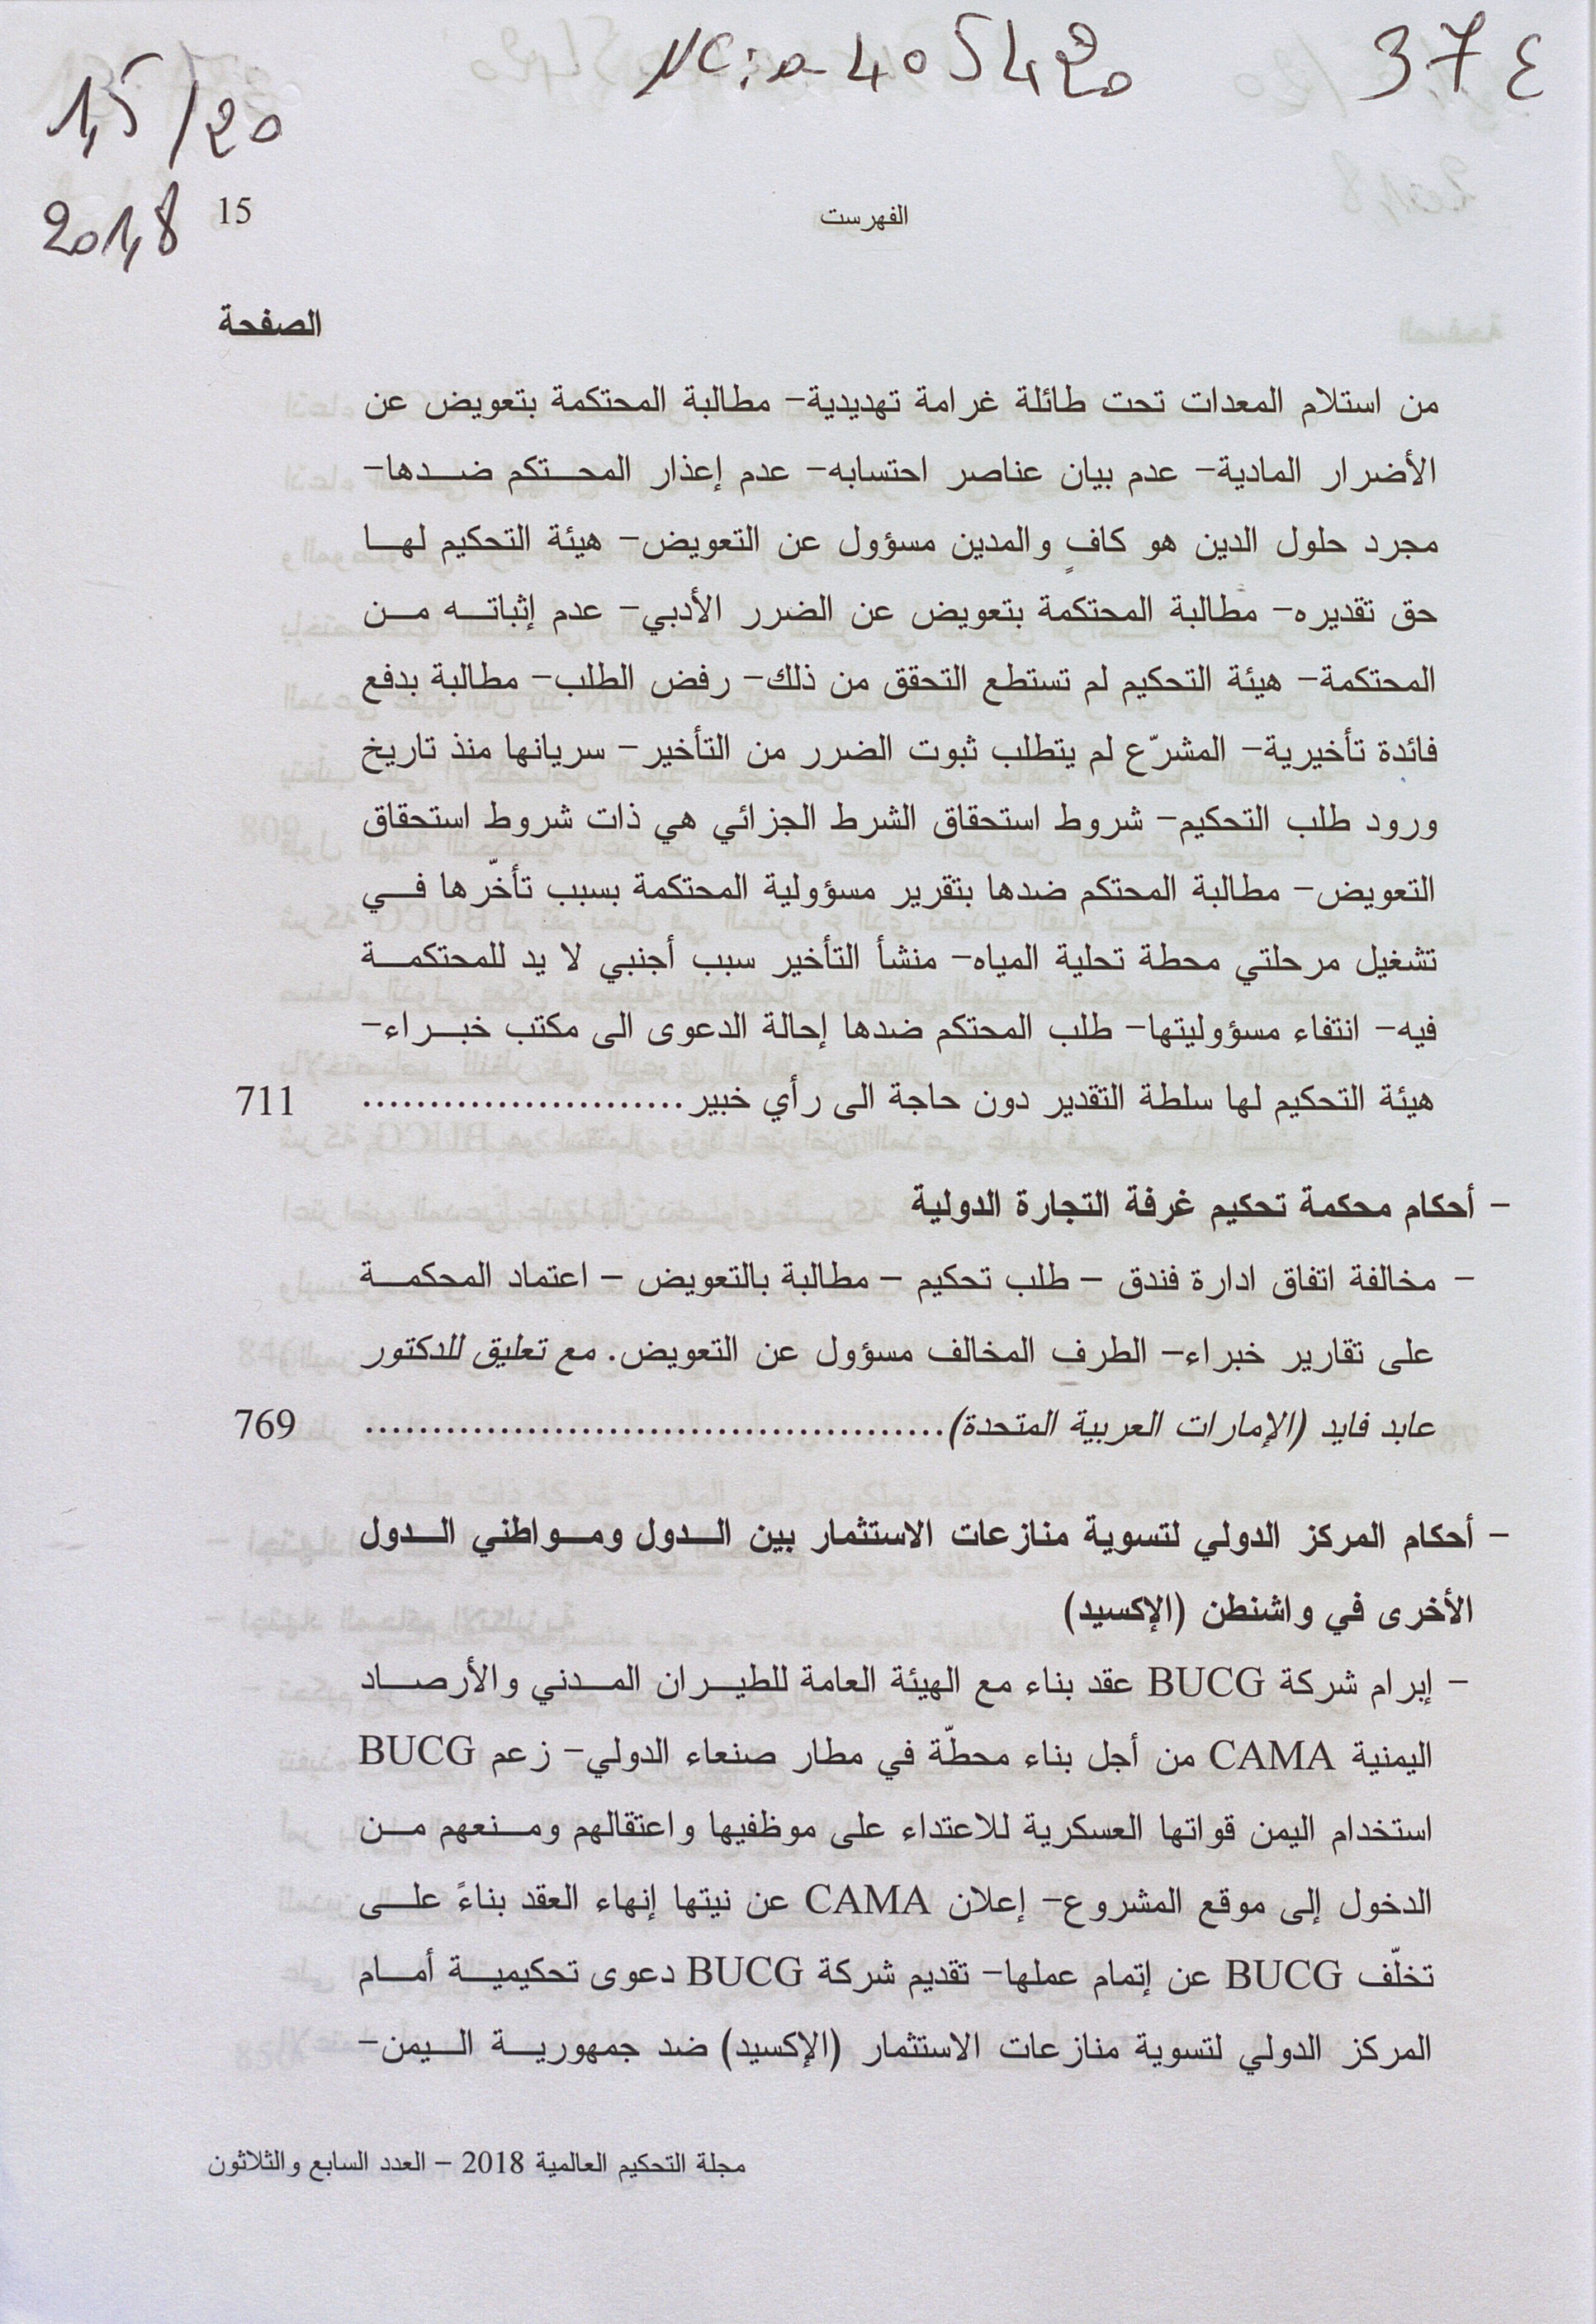 37 ع
NC: a-405420
15/20
2018
15
الفهرست
الصفحة
من استلام المعدات تحت طائلة غرامة تهديدية– مطالبة المحتكمة بتعويض عن
الأضرار المادية– عدم بيان عناصر احتسابه– عدم إعذار المحتكم ضدها–
مجرد حلول الدين هو كافٍ والمدين مسؤول عن التعويض– هيئة التحكيم لها
حق تقديره– مطالبة المحتكمة بتعويض عن الضرر الأدبي– عدم إثباته من
المحتكمة– هيئة التحكيم لم تستطع التحقق من ذلك– رفض الطلب– مطالبة بدفع
فائدة تأخيرية– المشرّع لم يتطلب ثبوت الضرر من التأخير– سريانها منذ تاريخ
ورود طلب التحكيم– شروط استحقاق الشرط الجزائي هي ذات شروط استحقاق
التعويض– مطالبة المحتكم ضدها بتقرير مسؤولية المحتكمة بسبب تأخّرها في
تشغيل مرحلتي محطة تحلية المياه– منشأ التأخير سبب أجنبي لا يد للمحتكمة
فيه– انتفاء مسؤوليتها– طلب المحتكم ضدها إحالة الدعوى الى مكتب خبراء–
هيئة التحكيم لها سلطة التقدير دون حاجة الى رأي خبير........................ 711
– أحكام محكمة تحكيم غرفة التجارة الدولية
– مخالفة اتفاق ادارة فندق – طلب تحكيم – مطالبة بالتعويض – اعتماد المحكمة
على تقارير خبراء– الطرف المخالف مسؤول عن التعويض. مع تعليق للدكتور
عابد فايد (الإمارات العربية المتحدة)........................................... 769
– أحكام المركز الدولي لتسوية منازعات الاستثمار بين الدول ومواطني الدول
الأخرى في واشنطن (الإكسيد)
– إبرام شركة BUCG عقد بناء مع الهيئة العامة للطيران المدني والأرصاد
اليمنية CAMA من أجل بناء محطّة في مطار صنعاء الدولي– زعم BUCG
استخدام اليمن قواتها العسكرية للاعتداء على موظفيها واعتقالهم ومنعهم من
الدخول إلى موقع المشروع– إعلان CAMA عن نيتها إنهاء العقد بناءً على
تخلّف BUCG عن إتمام عملها– تقديم شركة BUCG دعوى تحكيمية أمام
المركز الدولي لتسوية منازعات الاستثمار (الإكسيد) ضد جمهورية اليمن–
مجلة التحكيم العالمية 2018 – العدد السابع والثلاثون